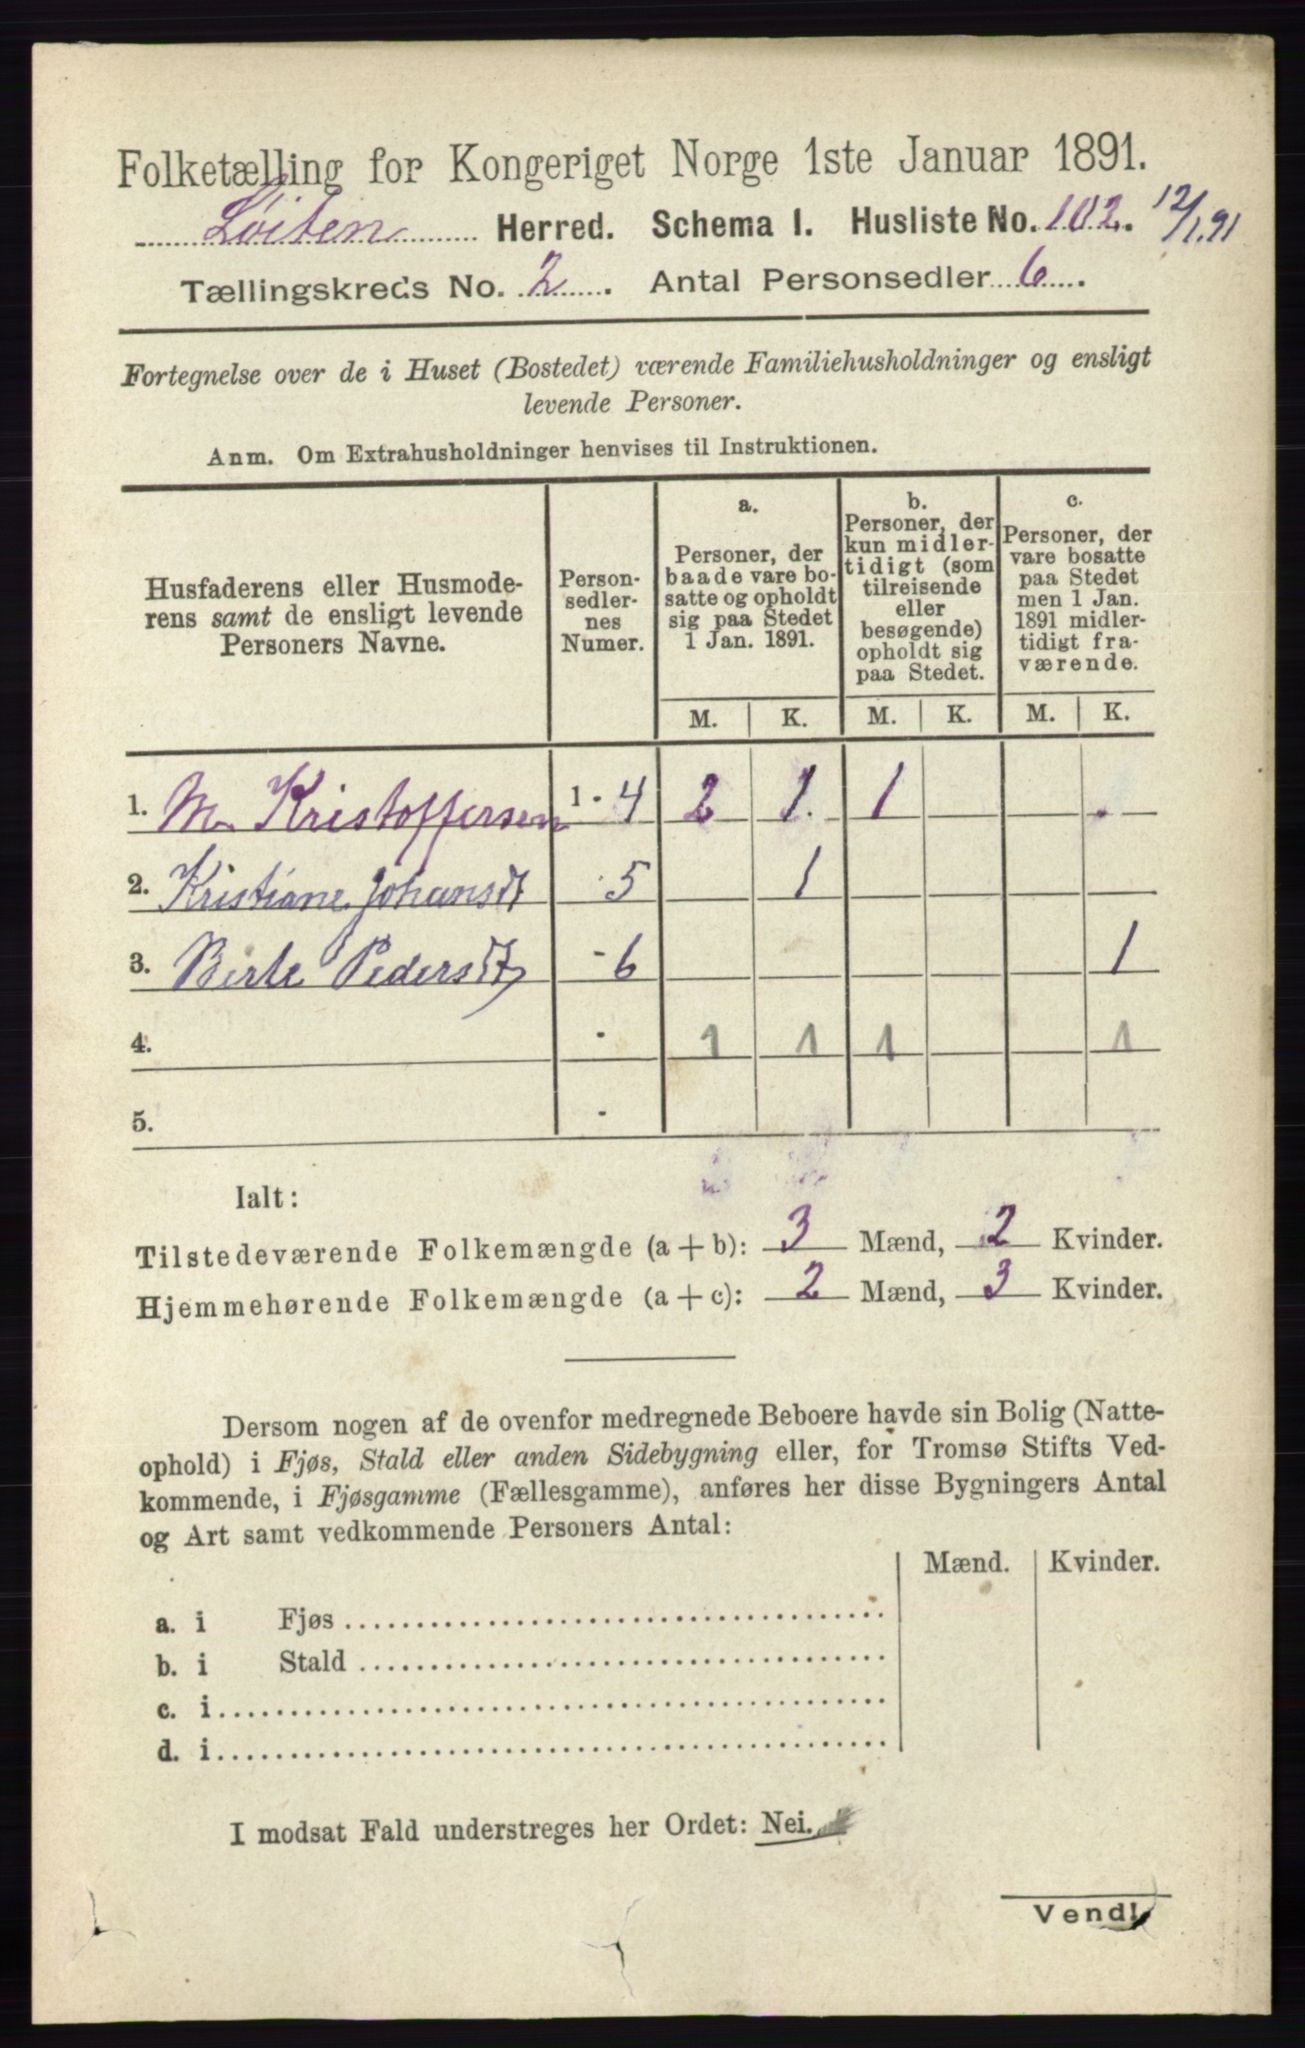 Folketælling for Kongeriget Norge 1ste Januar 1891.
Løiten Herred. Schema I. Husliste No. 102. 12/1.91
Tællingskreds No. 2. Antal Personsedler 6.
Fortegnelse over de i Huset (Bostedet) værende Familiehusholdninger og ensligt
levende Personer.
Anm. Om Extrahusholdninger henvises til Instruktionen.
Husfaderens eller Husmode-
rens samt de ensligt levende
Personers Navne.
Person-
sedler-
nes
Numer.
a.
Personer, der
baade vare bo-
satte og opholdt
sig paa Stedet
1 Jan. 1891.
b.
Personer, der
kun midler-
tidigt (som
tilreisende
eller
besøgende)
opholdt sig
paa Stedet.
c.
Personer, der
vare bosatte
paa Stedet
men 1 Jan.
1891 midler-
tidigt fra-
værende.
M. K. M. K. M. K.
1. M. Kristoffersen 1 - 4 2 1. 1
2. Kristiane Johansdt - 5 1
3. Berte Pedersdt - 6 1
4. - 1 1 1 1
5. -
Ialt:
Tilstedeværende Folkemængde (a + b): 3 Mænd, 2 Kvinder.
Hjemmehørende Folkemængde (a + c): 2 Mænd, 3 Kvinder.
Dersom nogen af de ovenfor medregnede Beboere havde sin Bolig (Natte-
ophold) i Fjøs, Stald eller anden Sidebygning eller, for Tromsø Stifts Ved-
kommende, i Fjøsgamme (Fællesgamme), anføres her disse Bygningers Antal
og Art samt vedkommende Personers Antal:
Mænd. Kvinder.
a. i Fjøs
b. i Stald
c. i
d. i
I modsat Fald understreges her Ordet: Nei.
Vend!